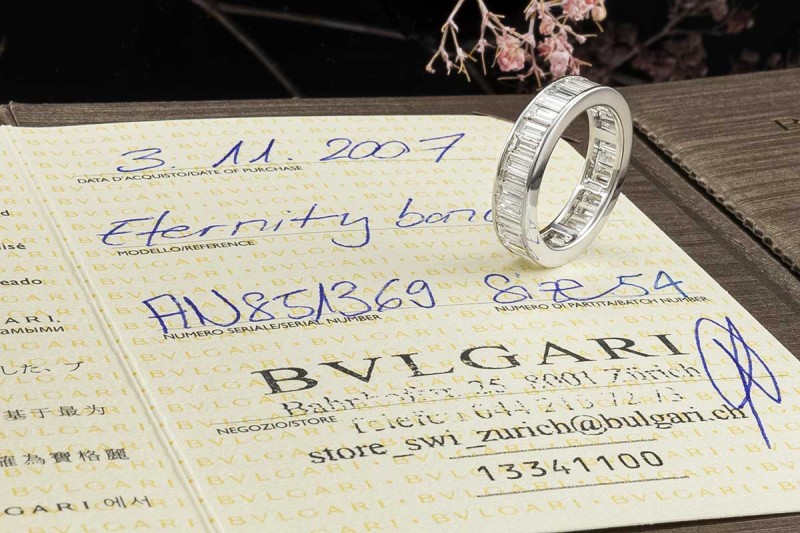 3. 11. 2007
DATA D'ACQUISTO/DATE OF PURCHASE
Eternity band
MODELLO/REFERENCE
AN851369 Size 54
NUMERO SERIALE/SERIAL NUMBER NUMERO DI PARTITA/BATCH NUMBER
BVLGARI
Bahnhofstr. 25 8001 Zürich
NEGOZIO/STORE
store_swi_zurich@bulgari.ch
13341100
した、ブ
基于最为
羅為寶格麗
GARI 에서